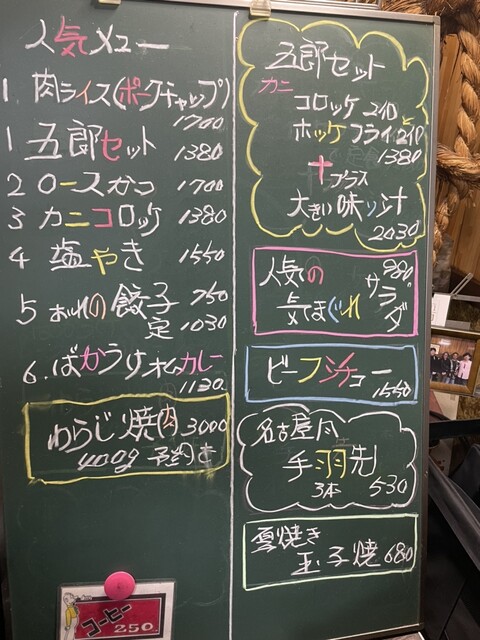 人気メニュー
1. 肉ライス(ポークチャップ)
1700
1 五郎セット 1380
2 ロースカツ 1700
3 カニコロッケ 1380
4 塩やき 1550
5 おれの餃子 750
定 1030
6. ばかうけオムカレー
1130
わらじ焼肉 3000
400g 予約
コーヒー
250
五郎セット
カニ
コロッケ 2ケ
ホッケフライ 2ケ
1380
+
プラス
大きい味ソ汁
2030
人気の
気まぐれ
サラダ
980
ビーフシチュー
1550
名古屋風
手羽先
3本 530
玉子焼 680